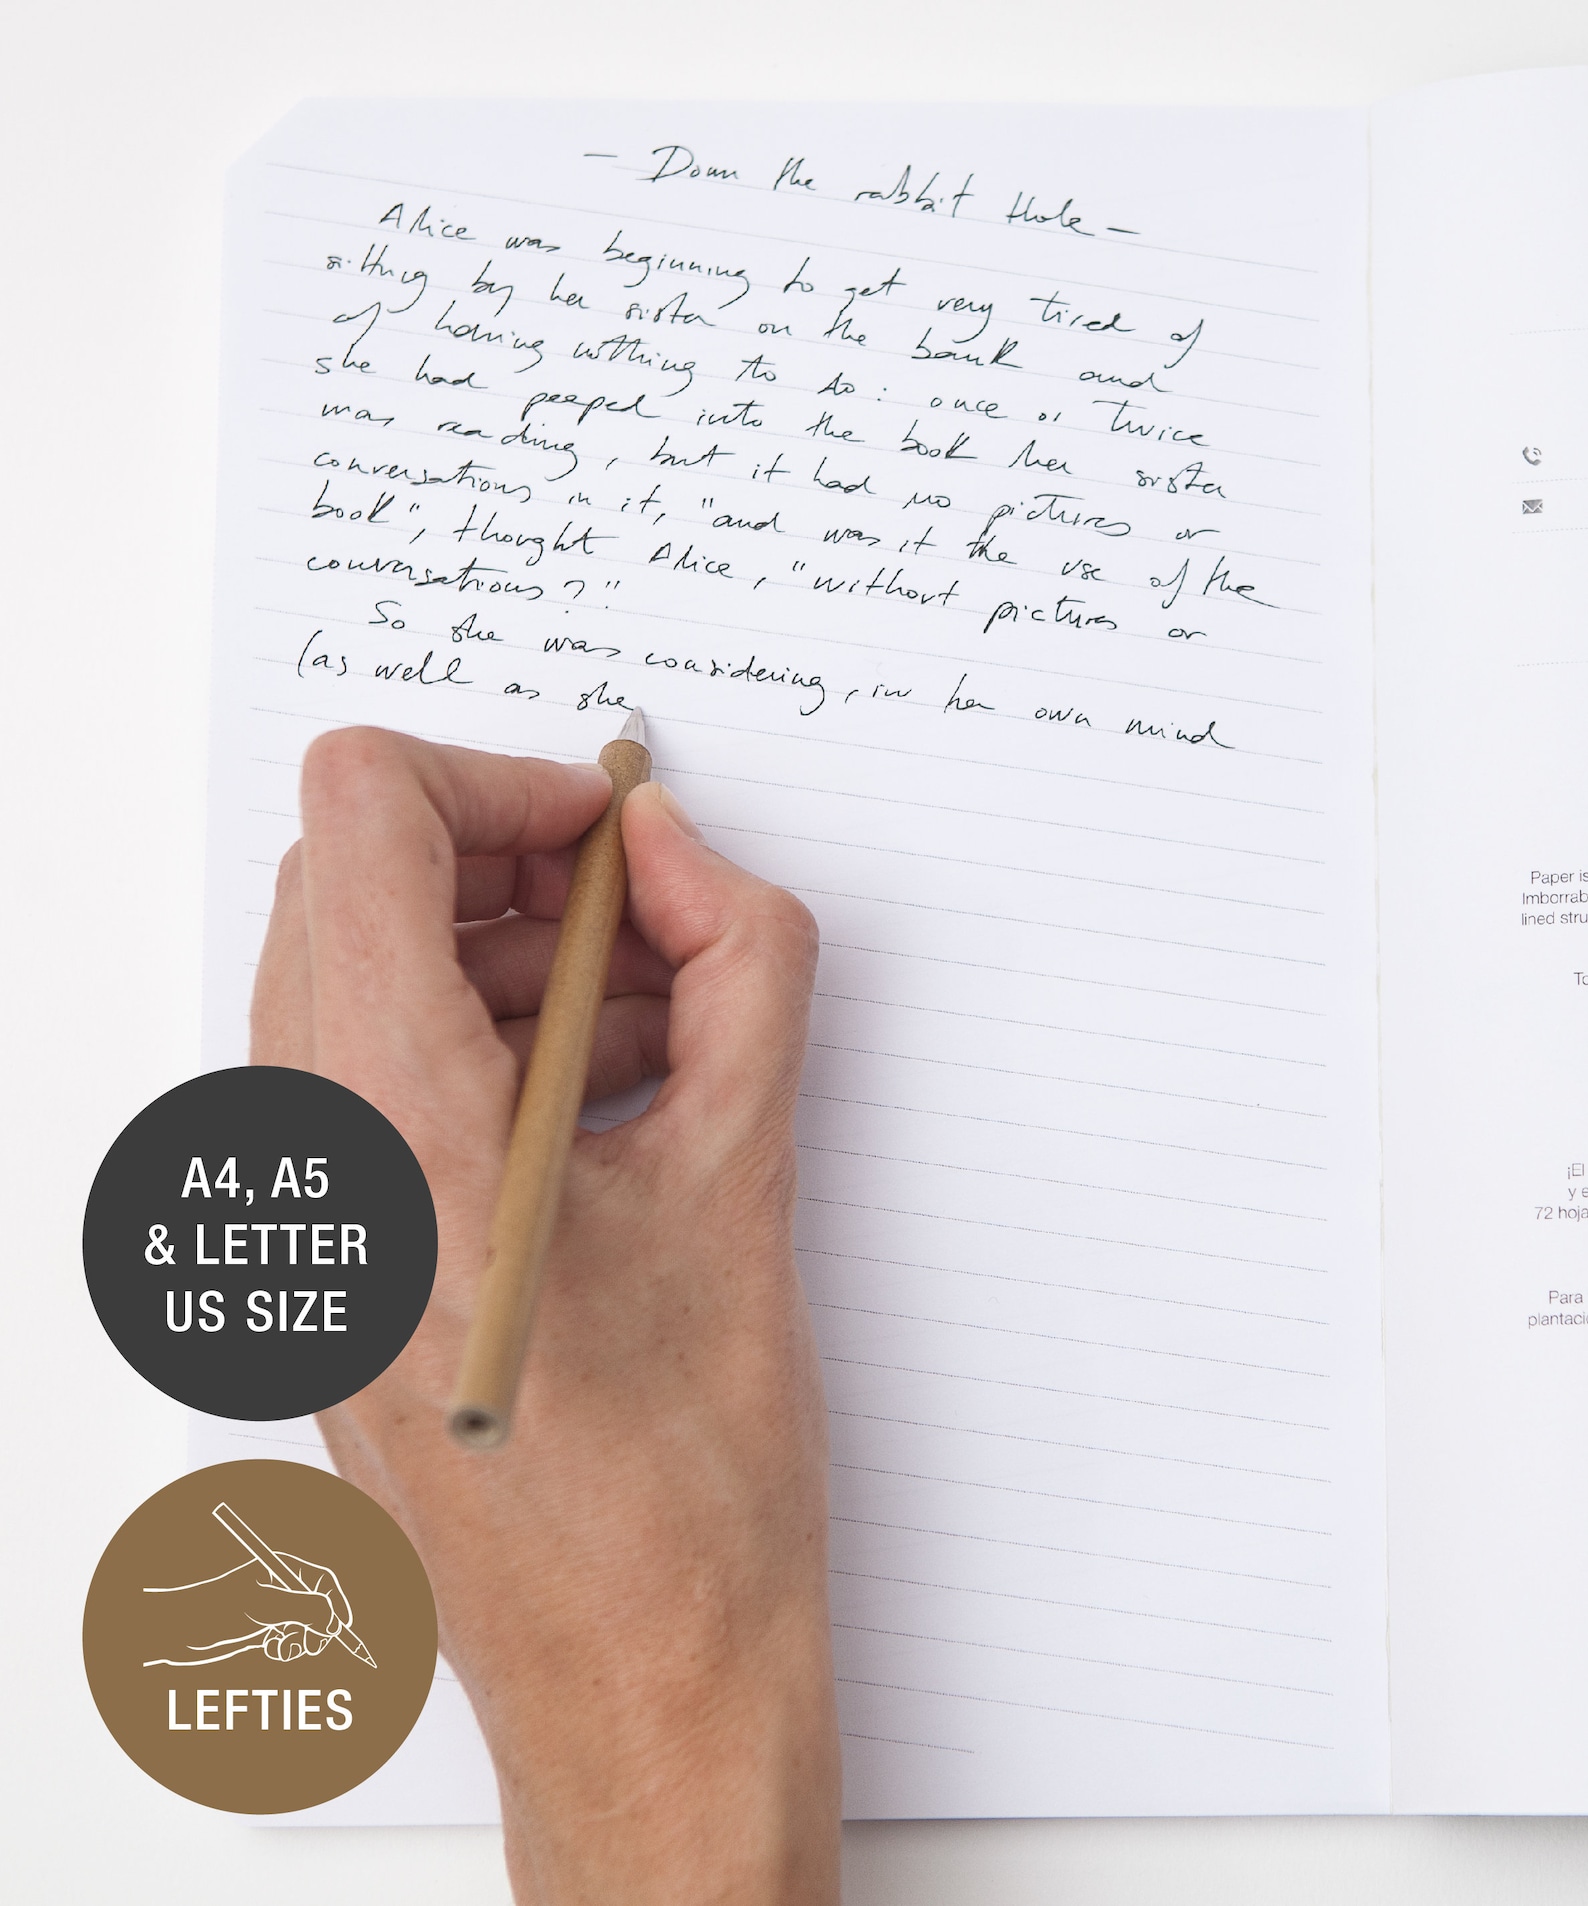 — Down the rabbit Hole —
Alice was beginning to get very tired of
sitting by her sister on the bank and
of having nothing to do: once or twice
she had peeped into the book her sister
was reading, but it had no pictures or
conversations in it, "and was it the use of the
book", thought Alice, "without pictures or
conversations?"
So she was considering, in her own mind
(as well as she
Paper is
Imborrab
lined stru
To
¡El
y e
72 hoja
Para
plantaci
A4, A5
& LETTER
US SIZE
LEFTIES